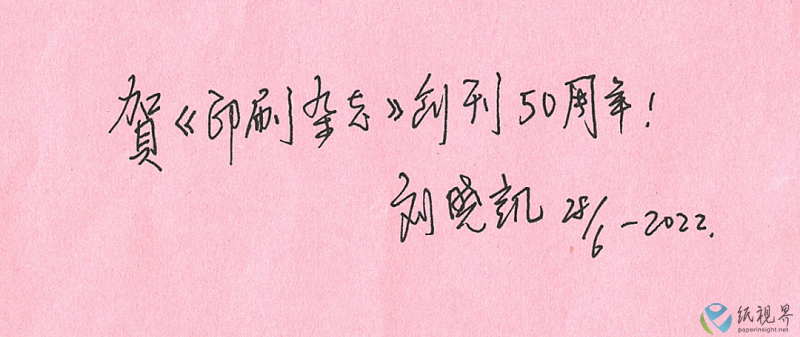 賀《印刷杂志》创刊50周年!
刘晓凯 28/6-2022.
纸视界
paperinsight.net